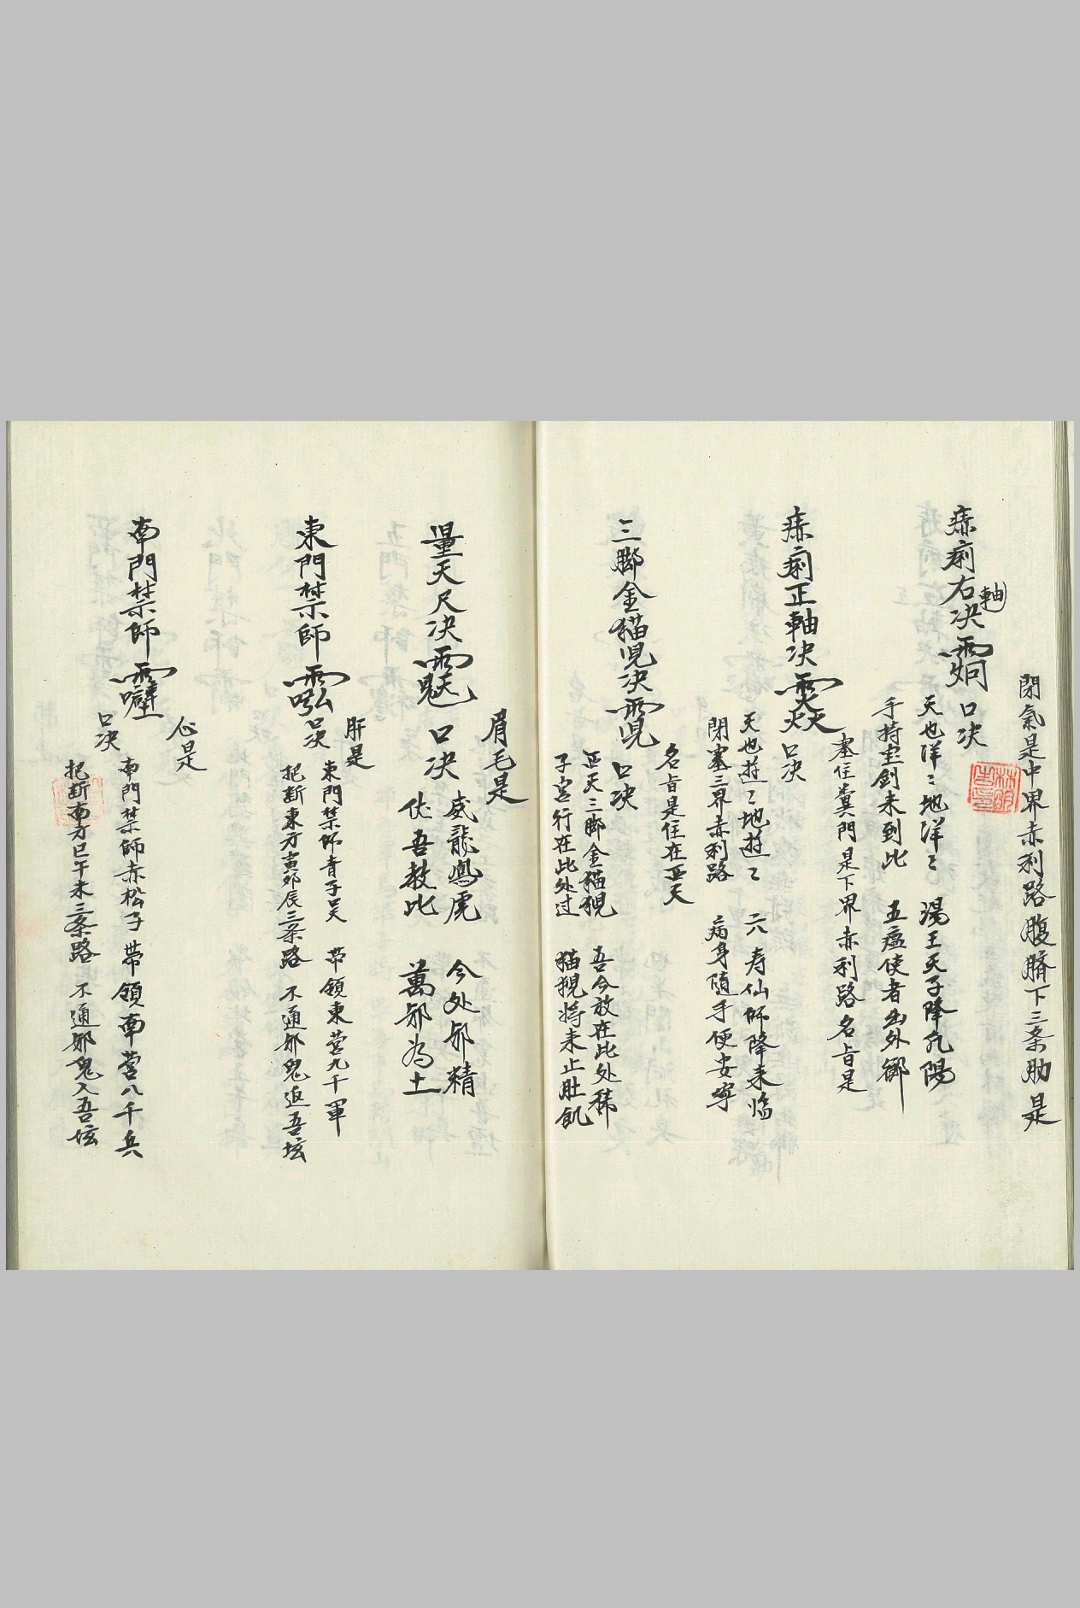 閉氣是中界赤利路腹臍下三条肋是
痧痢右軸决 口决
天也洋〻地洋〻 湯王天子降九陽
手持圭釗未到比 五瘟使者出外鄉
塞住糞門是下界赤利路名旨是
痧痢正軸决 口决
天也遊〻地遊〻 六寿仙師降来临
閉塞三界赤利路 病身随手便安寧
名旨是住在西天
三脚金猫児决 口决
西天三脚金猫猊 吾今放在此处
子宮行在此处过 猫猊将来止肚飢
眉毛是
量天尺决 口决
威龍鳴虎 今处邪精
仗吾教比 萬邪為土
肝是
東門禁師 口决
東門禁师青子 带领東营九千軍
把断東方寅卯辰三条路 不通邪鬼返吾坛
心是
南門禁師 口决
南門禁师赤松子带领南营八千兵
把断南方巳午未三条路 不通邪鬼入吾坛